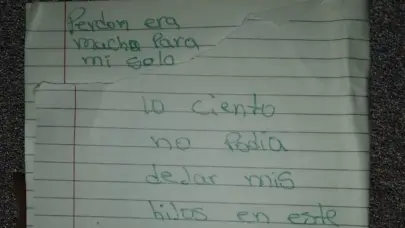 Perdon era
macho para
mi solo
lo ciento
no Podia
dejar mis
hilos en este